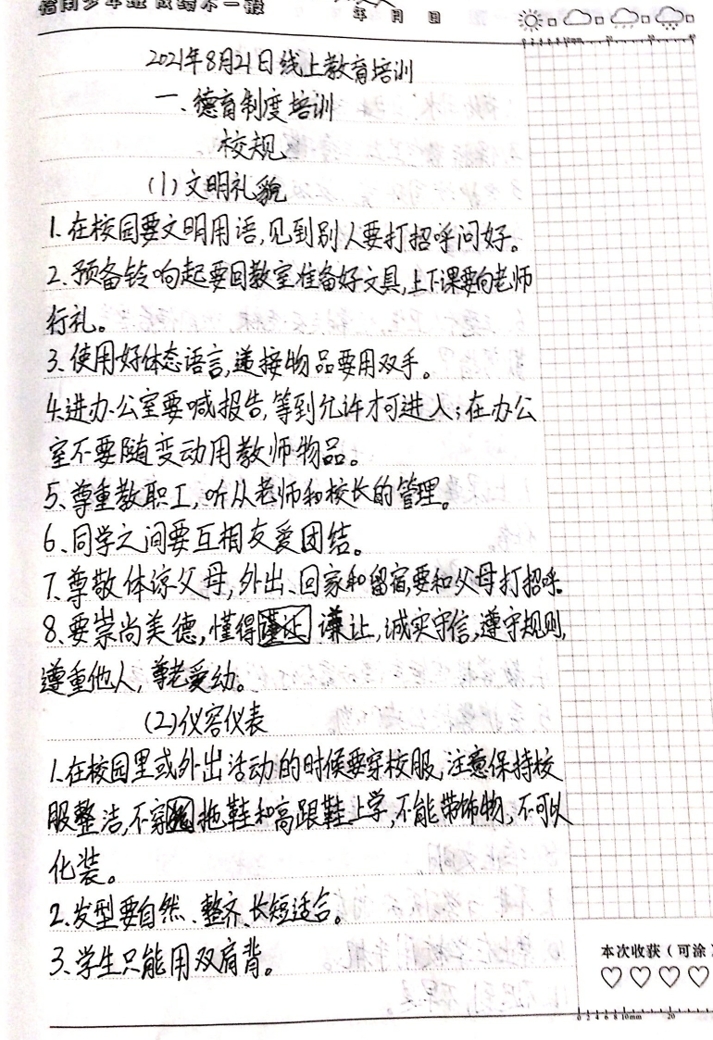 年 月 日
2021年8月21日线上教育培训
一、德育制度培训
校规
(1)文明礼貌
1.在校园要文明用语,见到别人要打招呼问好。
2.预备铃响起要回教室准备好文具,上下课要向老师
行礼。
3.使用好体态语言,递接物品要用双手。
4.进办公室要喊报告,等到允许才可进入;在办公
室不要随变动用教师物品。
5、尊重教职工,听从老师和校长的管理。
6、同学之间要互相友爱团结。
7.尊敬体谅父母,外出、回家和留宿,要和父母打招呼.
8.要崇尚美德,懂得谦让,诚实守信,遵守规则,
遵重他人,尊老爱幼。
(2)仪容仪表
1.在校园里或外出活动的时候要穿校服,注意保持校
服整洁,不穿拖鞋和高跟鞋上学,不能带饰物,不可以
化装。
2.发型要自然、整齐、长短适合。
3.学生只能用双肩背。
本次收获(可涂)
0 2 4 6 8 10mm 20